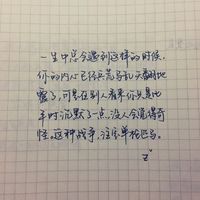 一生中总会遇到这样的时候，
你的内心已经兵荒马乱天翻地
覆了，可是在别人看来你只是比
平时沉默了一点，没人会觉得奇
怪。这种战争，注定单枪匹马。